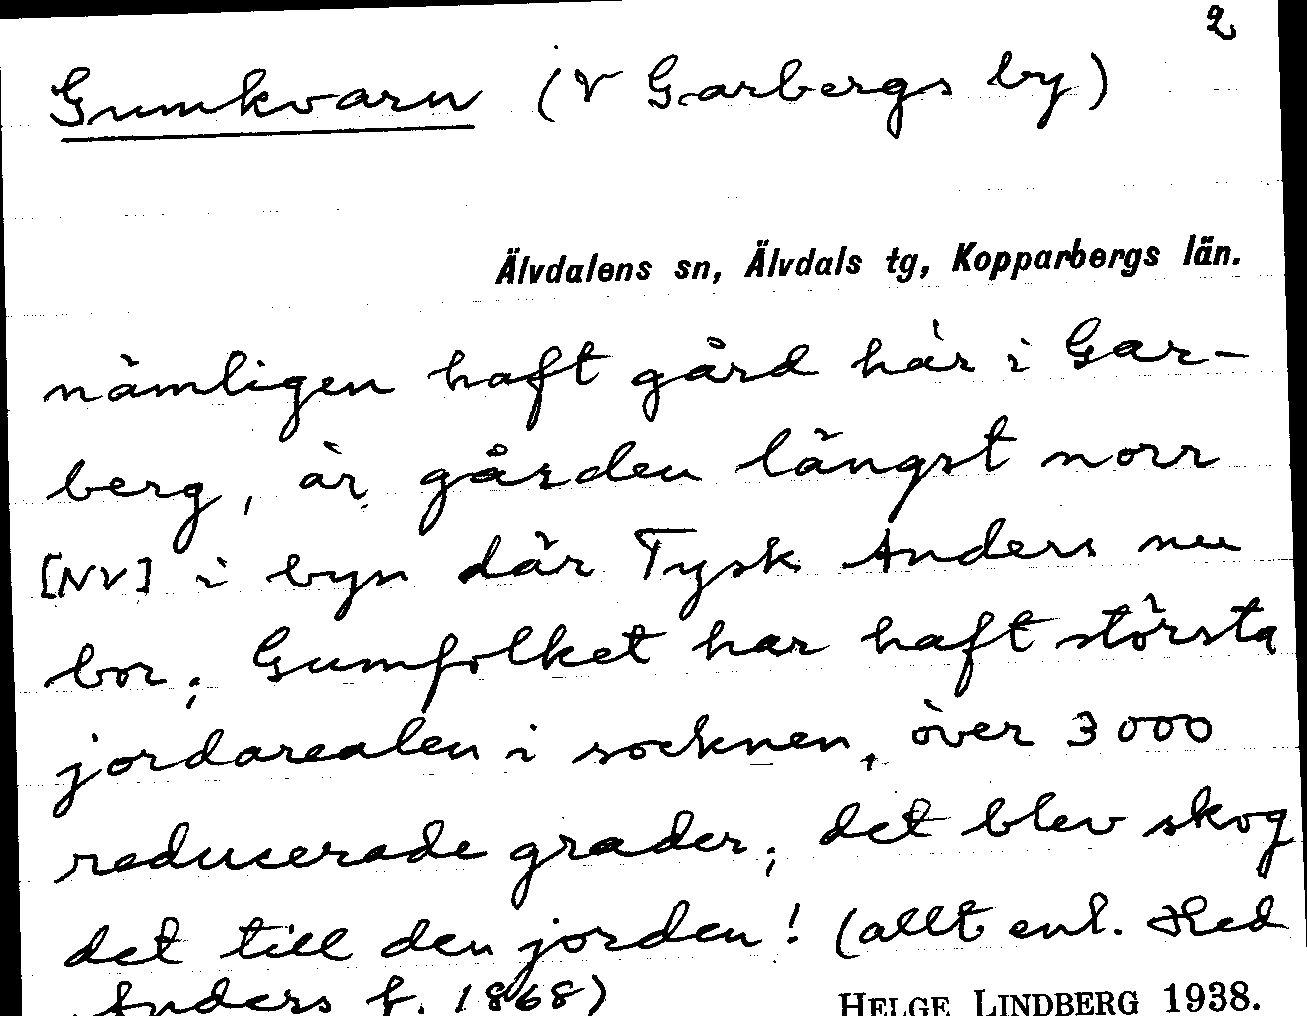 2
Gumkvarn (V Garbergs by)
Älvdalens sn, Älvdals tg, Kopparbergs län.
nämligen haft gård här i Gar-
berg, är gården längst norr
[NV] i byn där Tysk Anders nu
bor; Gumfolket har haft största
jordarealen i socknen, över 3000
reducerade grader; det blev skog
det till den jorden! (allt enl. Hed
Anders f. 1868)
HELGE LINDBERG 1938.